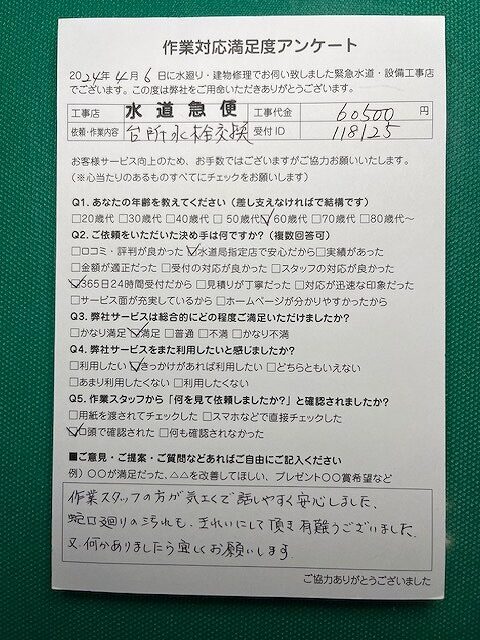 作業対応満足度アンケート
2024年4月6日に水廻り・建物修理でお伺い致しました緊急水道・設備工事店
でございます。この度は弊社をご用命いただきありがとうございます。
工事店 水道急便 工事代金 60500 円
依頼・作業内容 台所水栓交換 受付ID 118125
お客様サービス向上のため、お手数ではございますがご協力お願いいたします。
(※心当たりのあるものすべてにチェックをお願いします)
Q1. あなたの年齢を教えてください(差し支えなければで結構です)
□20歳代 □30歳代 □40歳代 □50歳代 ☑60歳代 □70歳代 □80歳代〜
Q2. ご依頼をいただいた決め手は何ですか?(複数回答可)
□口コミ・評判が良かった ☑水道局指定店で安心だから □実績があった
□金額が適正だった □受付の対応が良かった □スタッフの対応が良かった
☑365日24時間受付だから □見積りが丁寧だった □対応が迅速な印象だった
□サービス面が充実しているから □ホームページが分かりやすかったから
Q3. 弊社サービスは総合的にどの程度ご満足いただけましたか?
□かなり満足 ☑満足 □普通 □不満 □かなり不満
Q4. 弊社サービスをまた利用したいと感じましたか?
□利用したい ☑きっかけがあれば利用したい □どちらともいえない
□あまり利用したくない □利用したくない
Q5. 作業スタッフから「何を見て依頼しましたか?」と確認されましたか?
□用紙を渡されてチェックした □スマホなどで直接チェックした
☑口頭で確認された □何も確認されなかった
■ご意見・ご提案・ご質問などあればご自由にご記入ください
例)〇〇が満足だった、△△を改善してほしい、プレゼント〇〇賞希望など
作業スタッフの方が気さくで話しやすく安心しました、
蛇口廻りの汚れも、きれいにして頂き有難うございました.
又何かありましたら宜しくお願いします
ご協力ありがとうございました